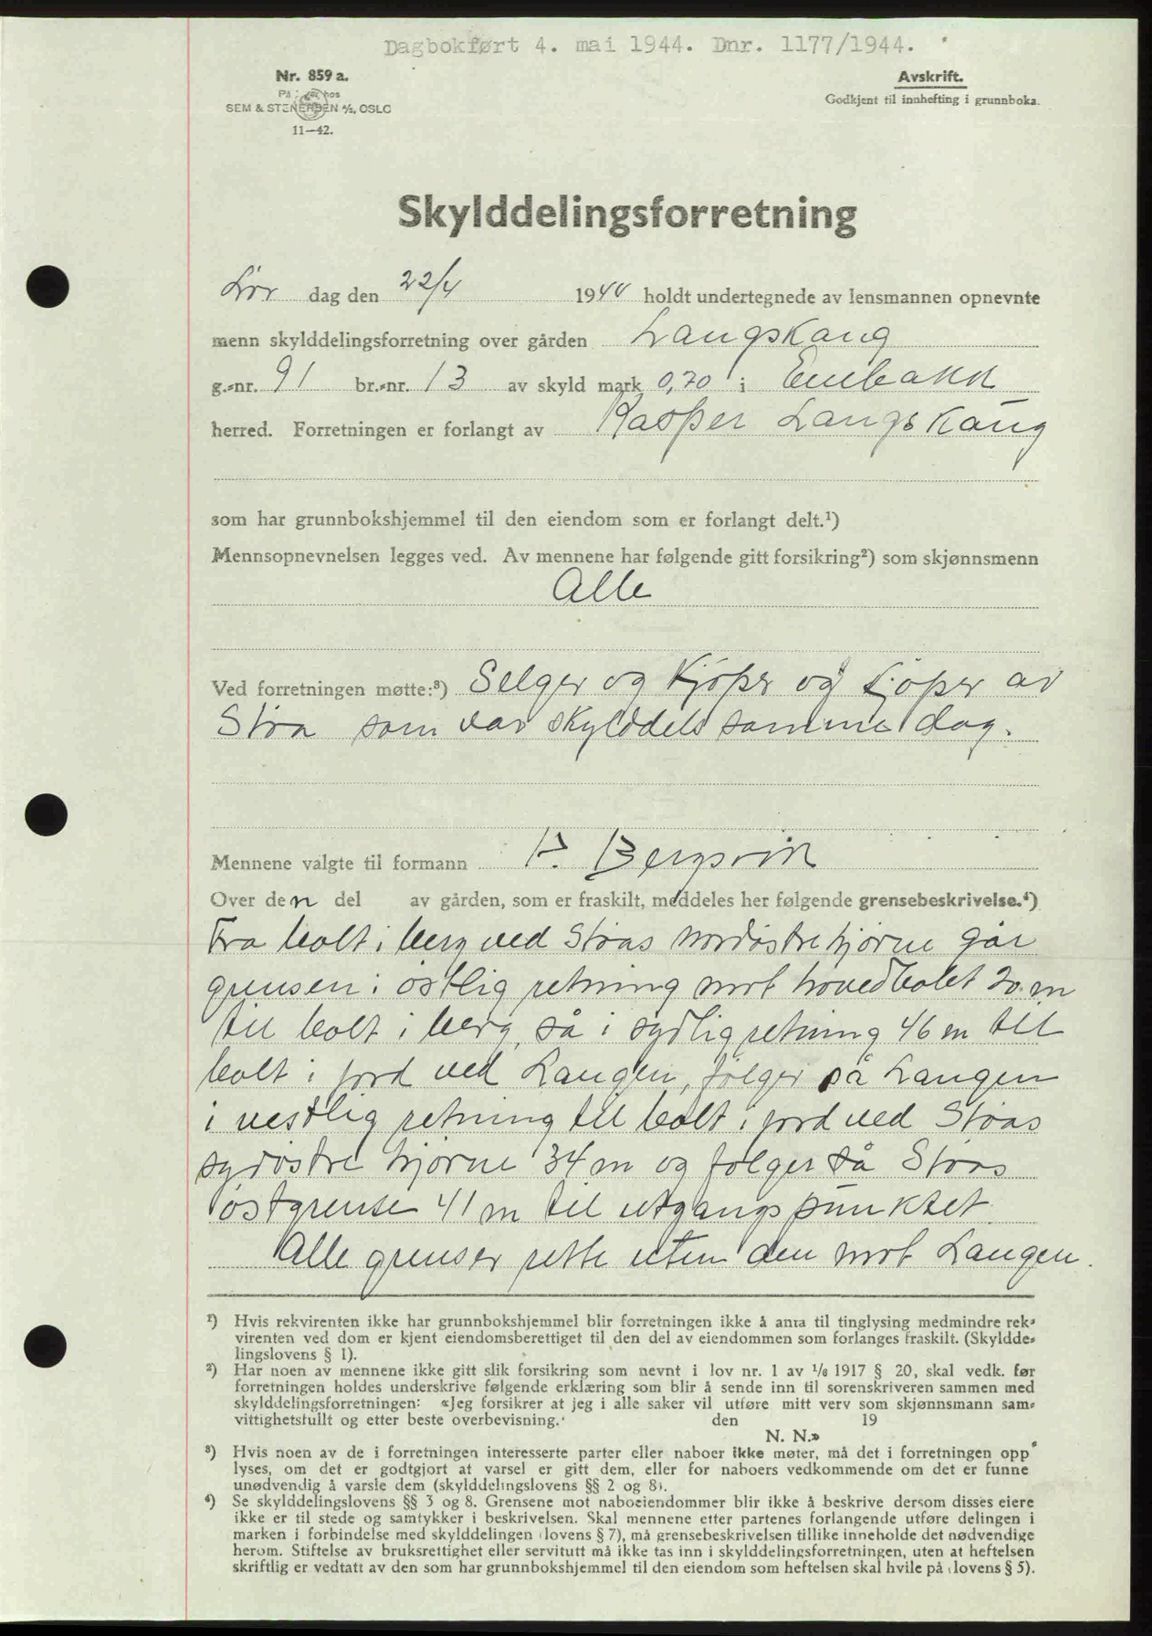 Dagbokført 4. mai 1944. Dnr. 1177/1944.
Nr. 859 a.
På hos
SEM & STENERSEN A/S, OSLO
11—42.
Avskrift.
Godkjent til innhefting i grunnboka.
Skylddelingsforretning
Lør dag den 22/4 1944 holdt undertegnede av lensmannen opnevnte
menn skylddelingsforretning over gården Langskaug
g.-nr. 91 br.-nr. 13 av skyld mark 0,70 i Enebakk
herred. Forretningen er forlangt av Kasper Langskaug
som har grunnbokshjemmel til den eiendom som er forlangt delt.¹)
Mennsopnevnelsen legges ved. Av mennene har følgende gitt forsikring²) som skjønnsmenn
Alle
Ved forretningen møtte:³) Selger og kjøper og kjøper av
Stoa som var skylddelt samme dag.
Mennene valgte til formann Bergsvik
Over den del av gården, som er fraskilt, meddeles her følgende grensebeskrivelse.⁴)
Fra bolt i berg ved Stoas nordøstre hjørne går
grensen i østlig retning mot hovedbølet 20 m
til bolt i berg, så i sydlig retning 46 m til
bolt i jord ved Langen, følger så Langen
i vestlig retning til bolt i jord ved Stoas
sydøstre hjørne 34 m og følger så Stoas
østgrense 41 m til utgangspunktet.
Alle grenser rette uten den mot Langen.
¹) Hvis rekvirenten ikke har grunnbokshjemmel blir forretningen ikke å anta til tinglysing medmindre rek-
virenten ved dom er kjent eiendomsberettiget til den del av eiendommen som forlanges fraskilt. (Skyldde-
lingslovens § 1).
²) Har noen av mennene ikke gitt slik forsikring som nevnt i lov nr. 1 av 1/6 1917 § 20, skal vedk. før
forretningen holdes underskrive følgende erklæring som blir å sende inn til sorenskriveren sammen med
skylddelingsforretningen: «Jeg forsikrer at jeg i alle saker vil utføre mitt verv som skjønnsmann sam-
vittighetsfullt og etter beste overbevisning. den 19
N. N.»
³) Hvis noen av de i forretningen interesserte parter eller naboer ikke møter, må det i forretningen opp-
lyses, om det er godtgjort at varsel er gitt dem, eller for naboers vedkommende om det er funne
unødvendig å varsle dem (skylddelingslovens §§ 2 og 8).
⁴) Se skylddelingslovens §§ 3 og 8. Grensene mot naboeiendommer blir ikke å beskrive dersom disses eiere
ikke er til stede og samtykker i beskrivelsen. Skal mennene etter partenes forlangende utføre delingen i
marken i forbindelse med skylddelingen (lovens § 7), må grensebeskrivelsen tillike inneholde det nødvendige
herom. Stiftelse av bruksrettighet eller servitutt må ikke tas inn i skylddelingsforretningen, uten at heftelsen
skriftlig er vedtatt av den som har grunnbokshjemmel til den eiendom som heftelsen skal hvile på (lovens § 5).